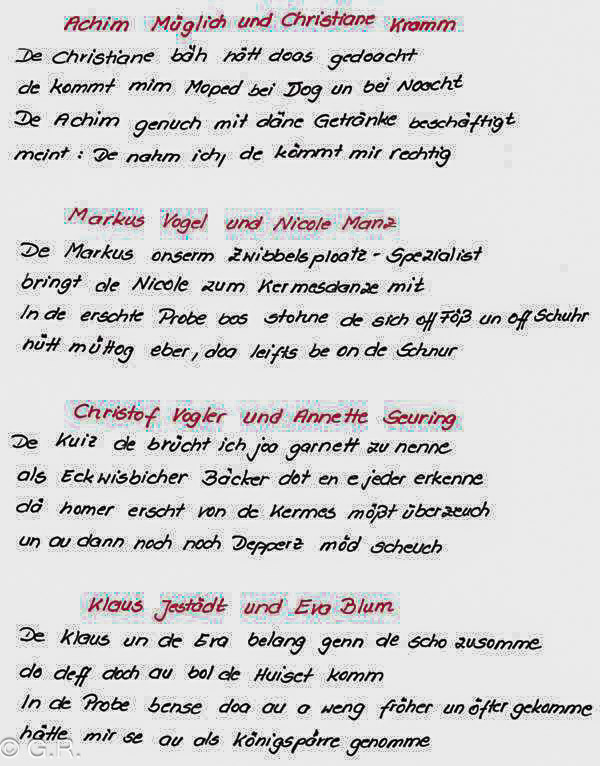 Achim Müglich und Christiane Kramm
De Christiane bäh hätt doas gedoacht
de kommt mim Moped bei Dog un bei Noacht
De Achim genuch mit däne Getränke beschäftigt
meint: De nahm ich, de kömmt mir rechtig
Markus Vogel und Nicole Manz
De Markus onserm Zwibbelsploatz-Spezialist
bringt de Nicole zum Kermesdanze mit
In de erschte Probe bos stohne de sich off Föß un off Schuhr
hütt müttog eber, doa leifts be on de Schnur
Christof Vogler und Annette Seuring
De Kuiz de brücht ich joo garnett zu nenne
als Eckwisbicher Bäcker dot en e jeder erkenne
dä homer erscht von de Kermes mößt überzeuch
un au dann noch noch Depperz möd scheuch
Klaus Jestädt und Eva Blum
De Klaus un de Eva belang genn de scho zusomme
do deff doch au bol de Huiset komm
In de Probe bense doa au a weng fröher un öfter gekomme
hätte mir se au als Königspärre genomme
© G.R.